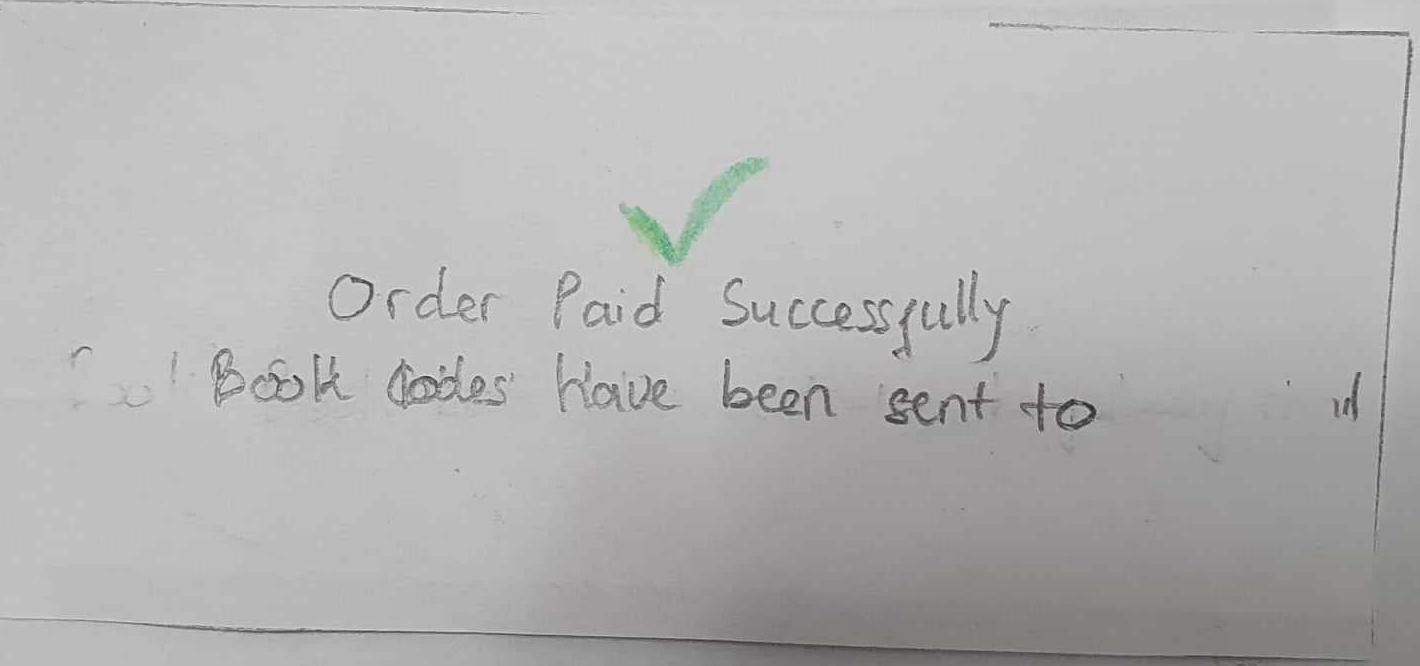 Order Paid Successfully
Book Codes have been sent to